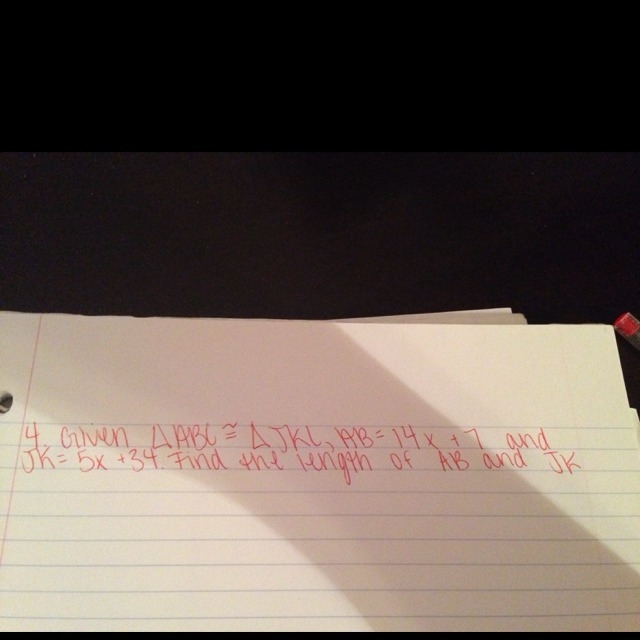 4. Given △ABC ≅ △JKL, AB = 14x + 7 and
JK = 5x + 34. Find the length of AB and JK